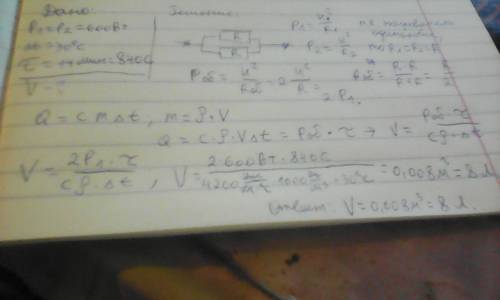 Дано: Решение:
P₁=P₂=600Вт
Δt=30°C
τ=14мин=840С
V-?
R
R
P₁=U²/R₁
P₂=U²/R₂, то R₁=R₂=R
Pоб=U²/Rоб=2U²/R=2P₁
Rоб=R·R/R+R=R/2
Q=cmΔt, m=ρ·V
Q=c·ρ·VΔt=Pоб·τ → V=Pоб·τ/cρ·Δt
V=2P₁·τ/cρ·Δt, V=2·600Вт·840С/4200·1000·30°C=0,008м³=8л.
Ответ: V=0,008м³=8л.